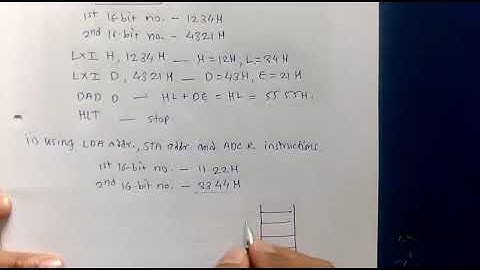 1st 16-bit no. - 1234H
2nd 16-bit no. - 4321H
LXI H, 1234H — H=12H, L=34H
LXI D, 4321H — D=43H, E=21H
DAD D — HL+DE = HL = 5555H.
HLT — stop
ii) using LDA addr., STA addr. and ADC R instructions.
1st 16-bit no. - 1122H
2nd 16-bit no. - 3344H